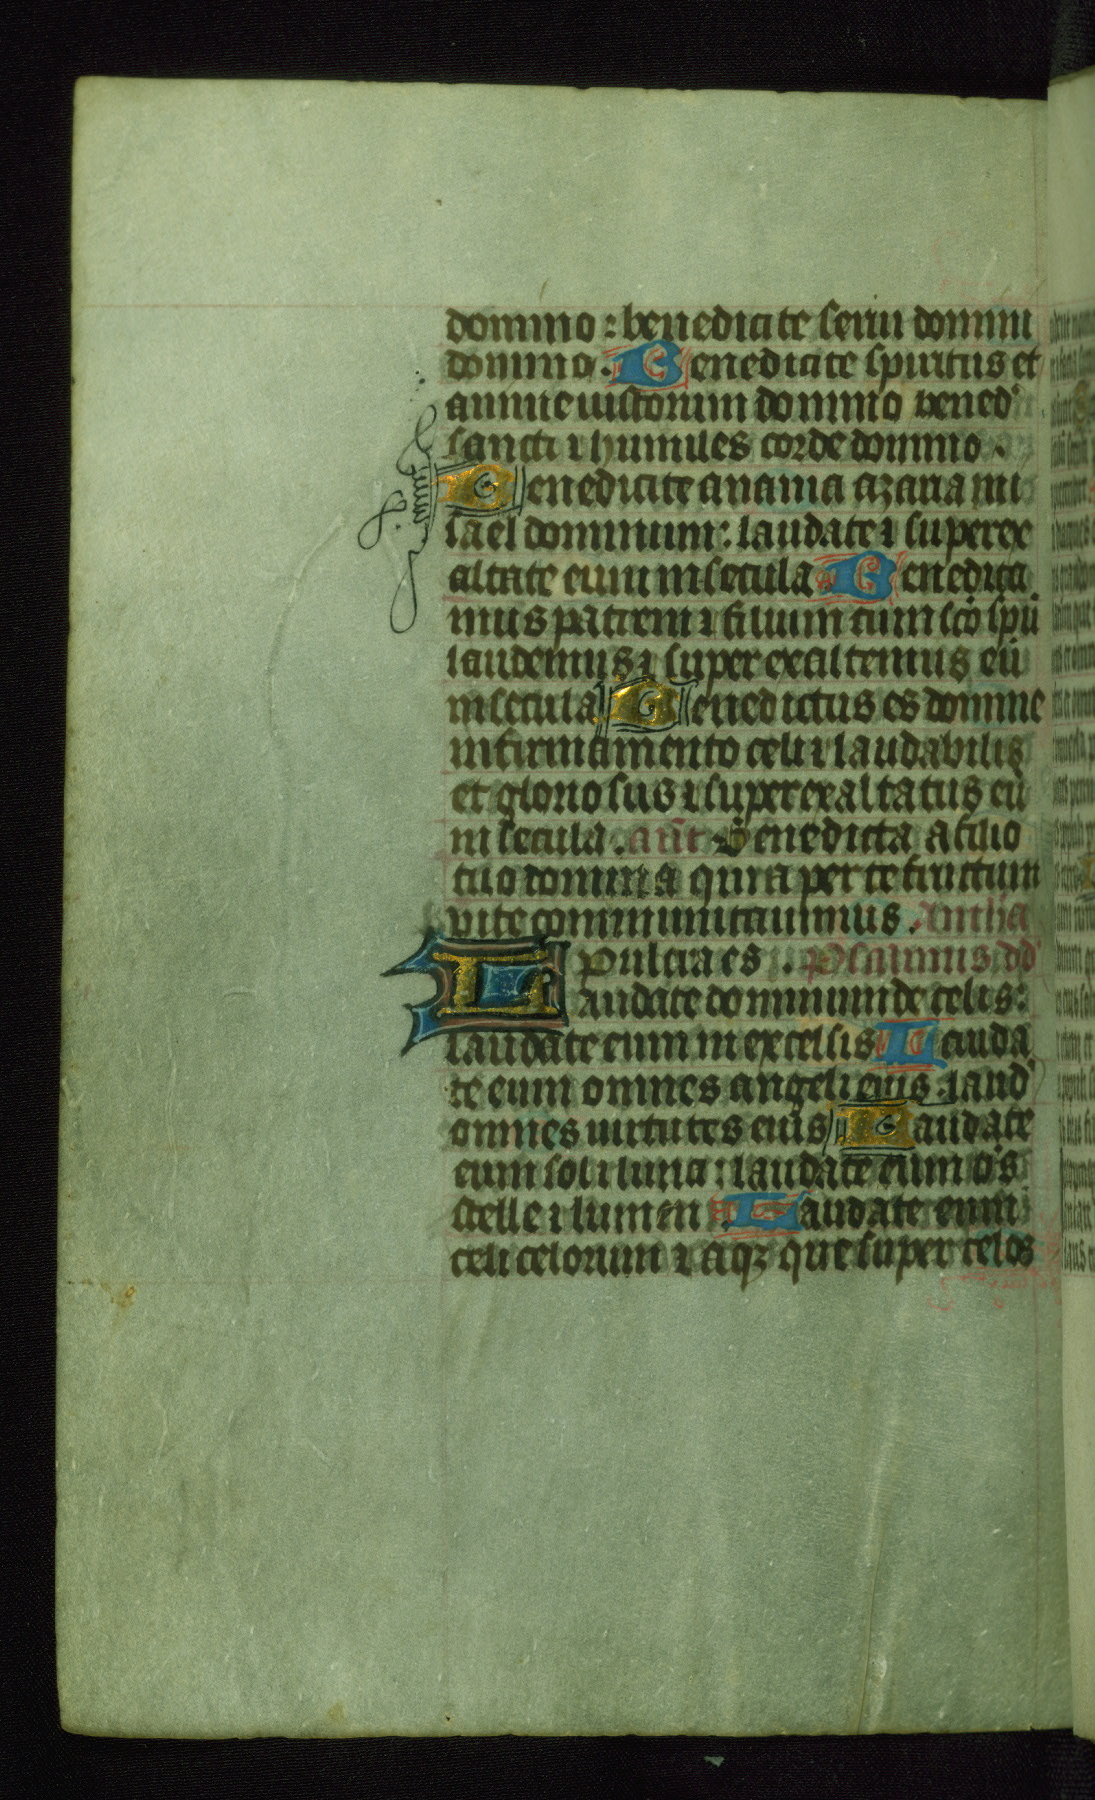 domino : benedicite serui domini
domino . Benedicite spiritus et
anime iustorum domino bened'
sancti ⁊ humiles corde domino .
Benedicite anania azaria mi
sael dominum : laudate ⁊ superex
altate eum in secula . Benedica
mus patrem ⁊ filium cum sc̄o spū
laudemus ⁊ super exaltemus eū
in secula Benedictus es domine
in firmamento celi ⁊ laudabilis
et gloriosus ⁊ superexaltatus eū
in secula . añt Benedicta a filio
tuo domina quia per te fructum
vite communicauimus . Antiha
pulcra es . Psalmus dd'
Laudate dominum de celis :
laudate eum in excelsis Lauda
te eum omnes angeli eius . laud'
omnes uirtutes eius Laudate
eum sol ⁊ luna : laudate eum ōs
stelle ⁊ lumen . Laudate eum
celi celorum ⁊ aq̄ que super celos